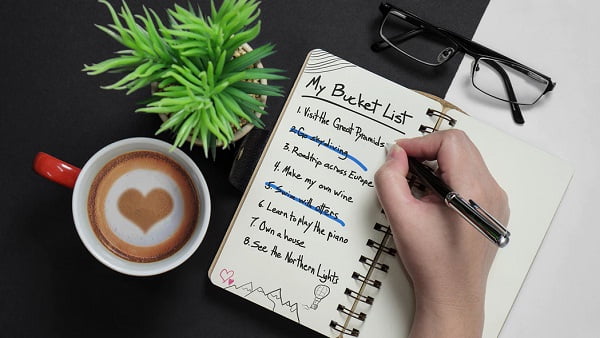 My Bucket List
1. Visit the Great Pyramids
2. Go skydiving
3. Roadtrip across Europe
4. Make my own wine
5. Swim with otters
6. Learn to play the piano
7. Own a house
8. See the Northern Lights